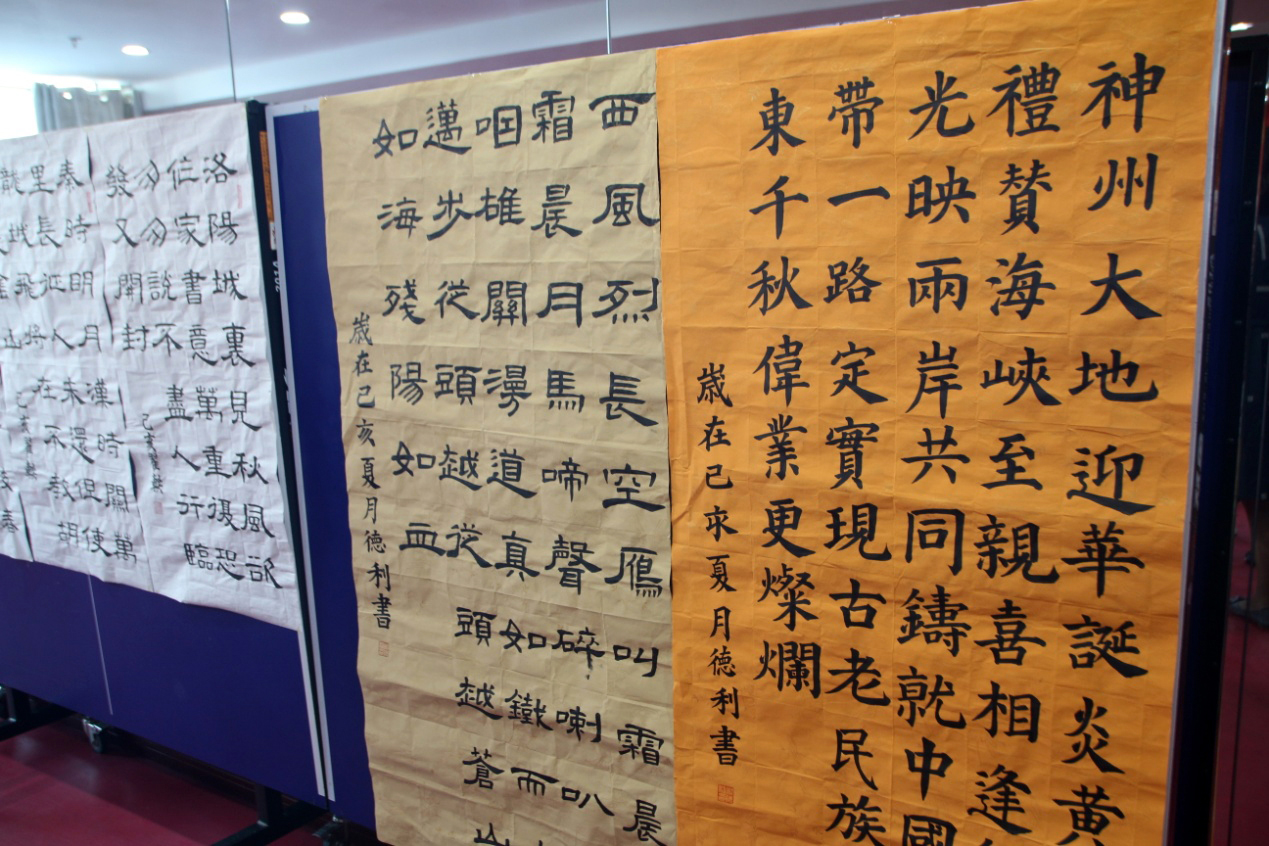 神州大地迎華誕炎黃
禮贊海峽至親喜相逢
光映兩岸共同鑄就中國
帶一路定實現古老民族
東千秋偉業更燦爛
歲在己亥夏月德利書
西風烈長空雁叫霜晨
霜晨月馬啼聲碎喇叭
咽雄關漫道真如鐵而
邁步從頭越從頭越蒼山
如海殘陽如血
歲在己亥夏月德利書
洛陽城裏見秋風欲
作家書意萬重復恐
匆匆說不盡人行臨
發又開封
秦時明月漢時關萬
里長征人未還但使
城飛將在不教胡